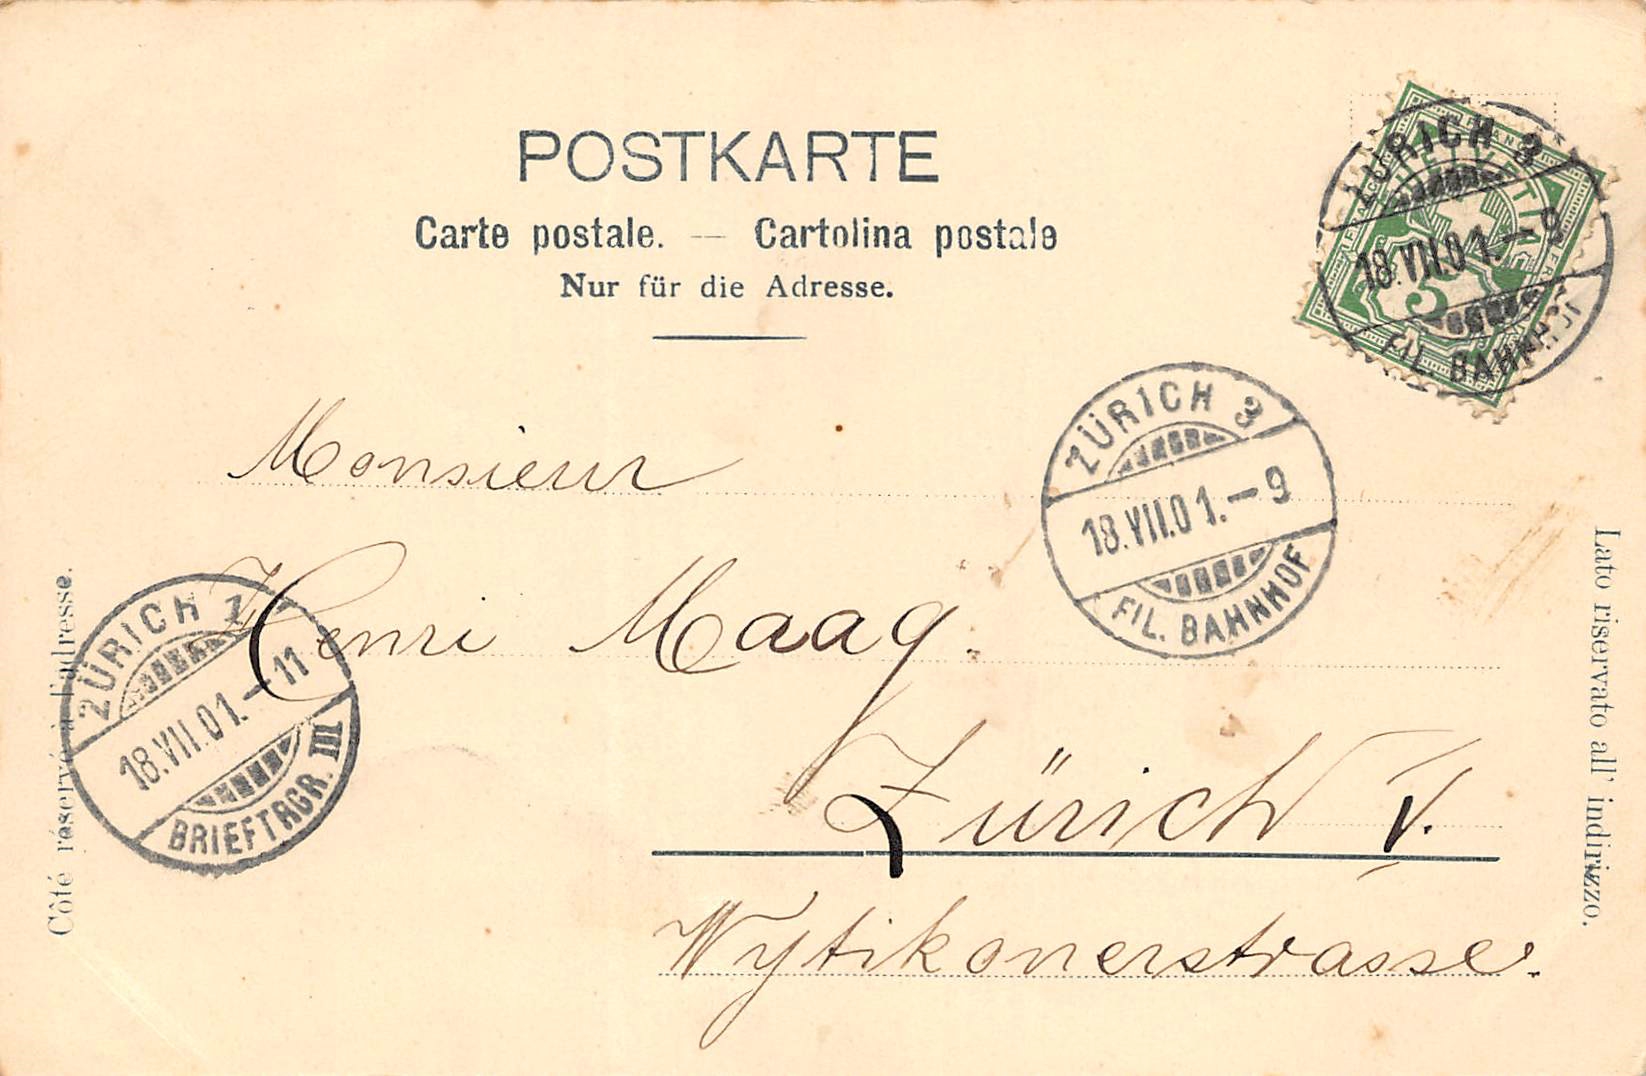 POSTKARTE
Carte postale. — Cartolina postale
Nur für die Adresse.
ZÜRICH 3
18.VII.01.–9
FIL. BAHNHOF
5
ZÜRICH 3
18.VII.01.–9
FIL. BAHNHOF
Monsieur
Henri Maag.
Zürich V.
Wytikonerstrasse.
ZÜRICH 1
18.VII.01.–11
BRIEFTRGR. III
Côté réservé à l'adresse.
Lato riservato all' indirizzo.